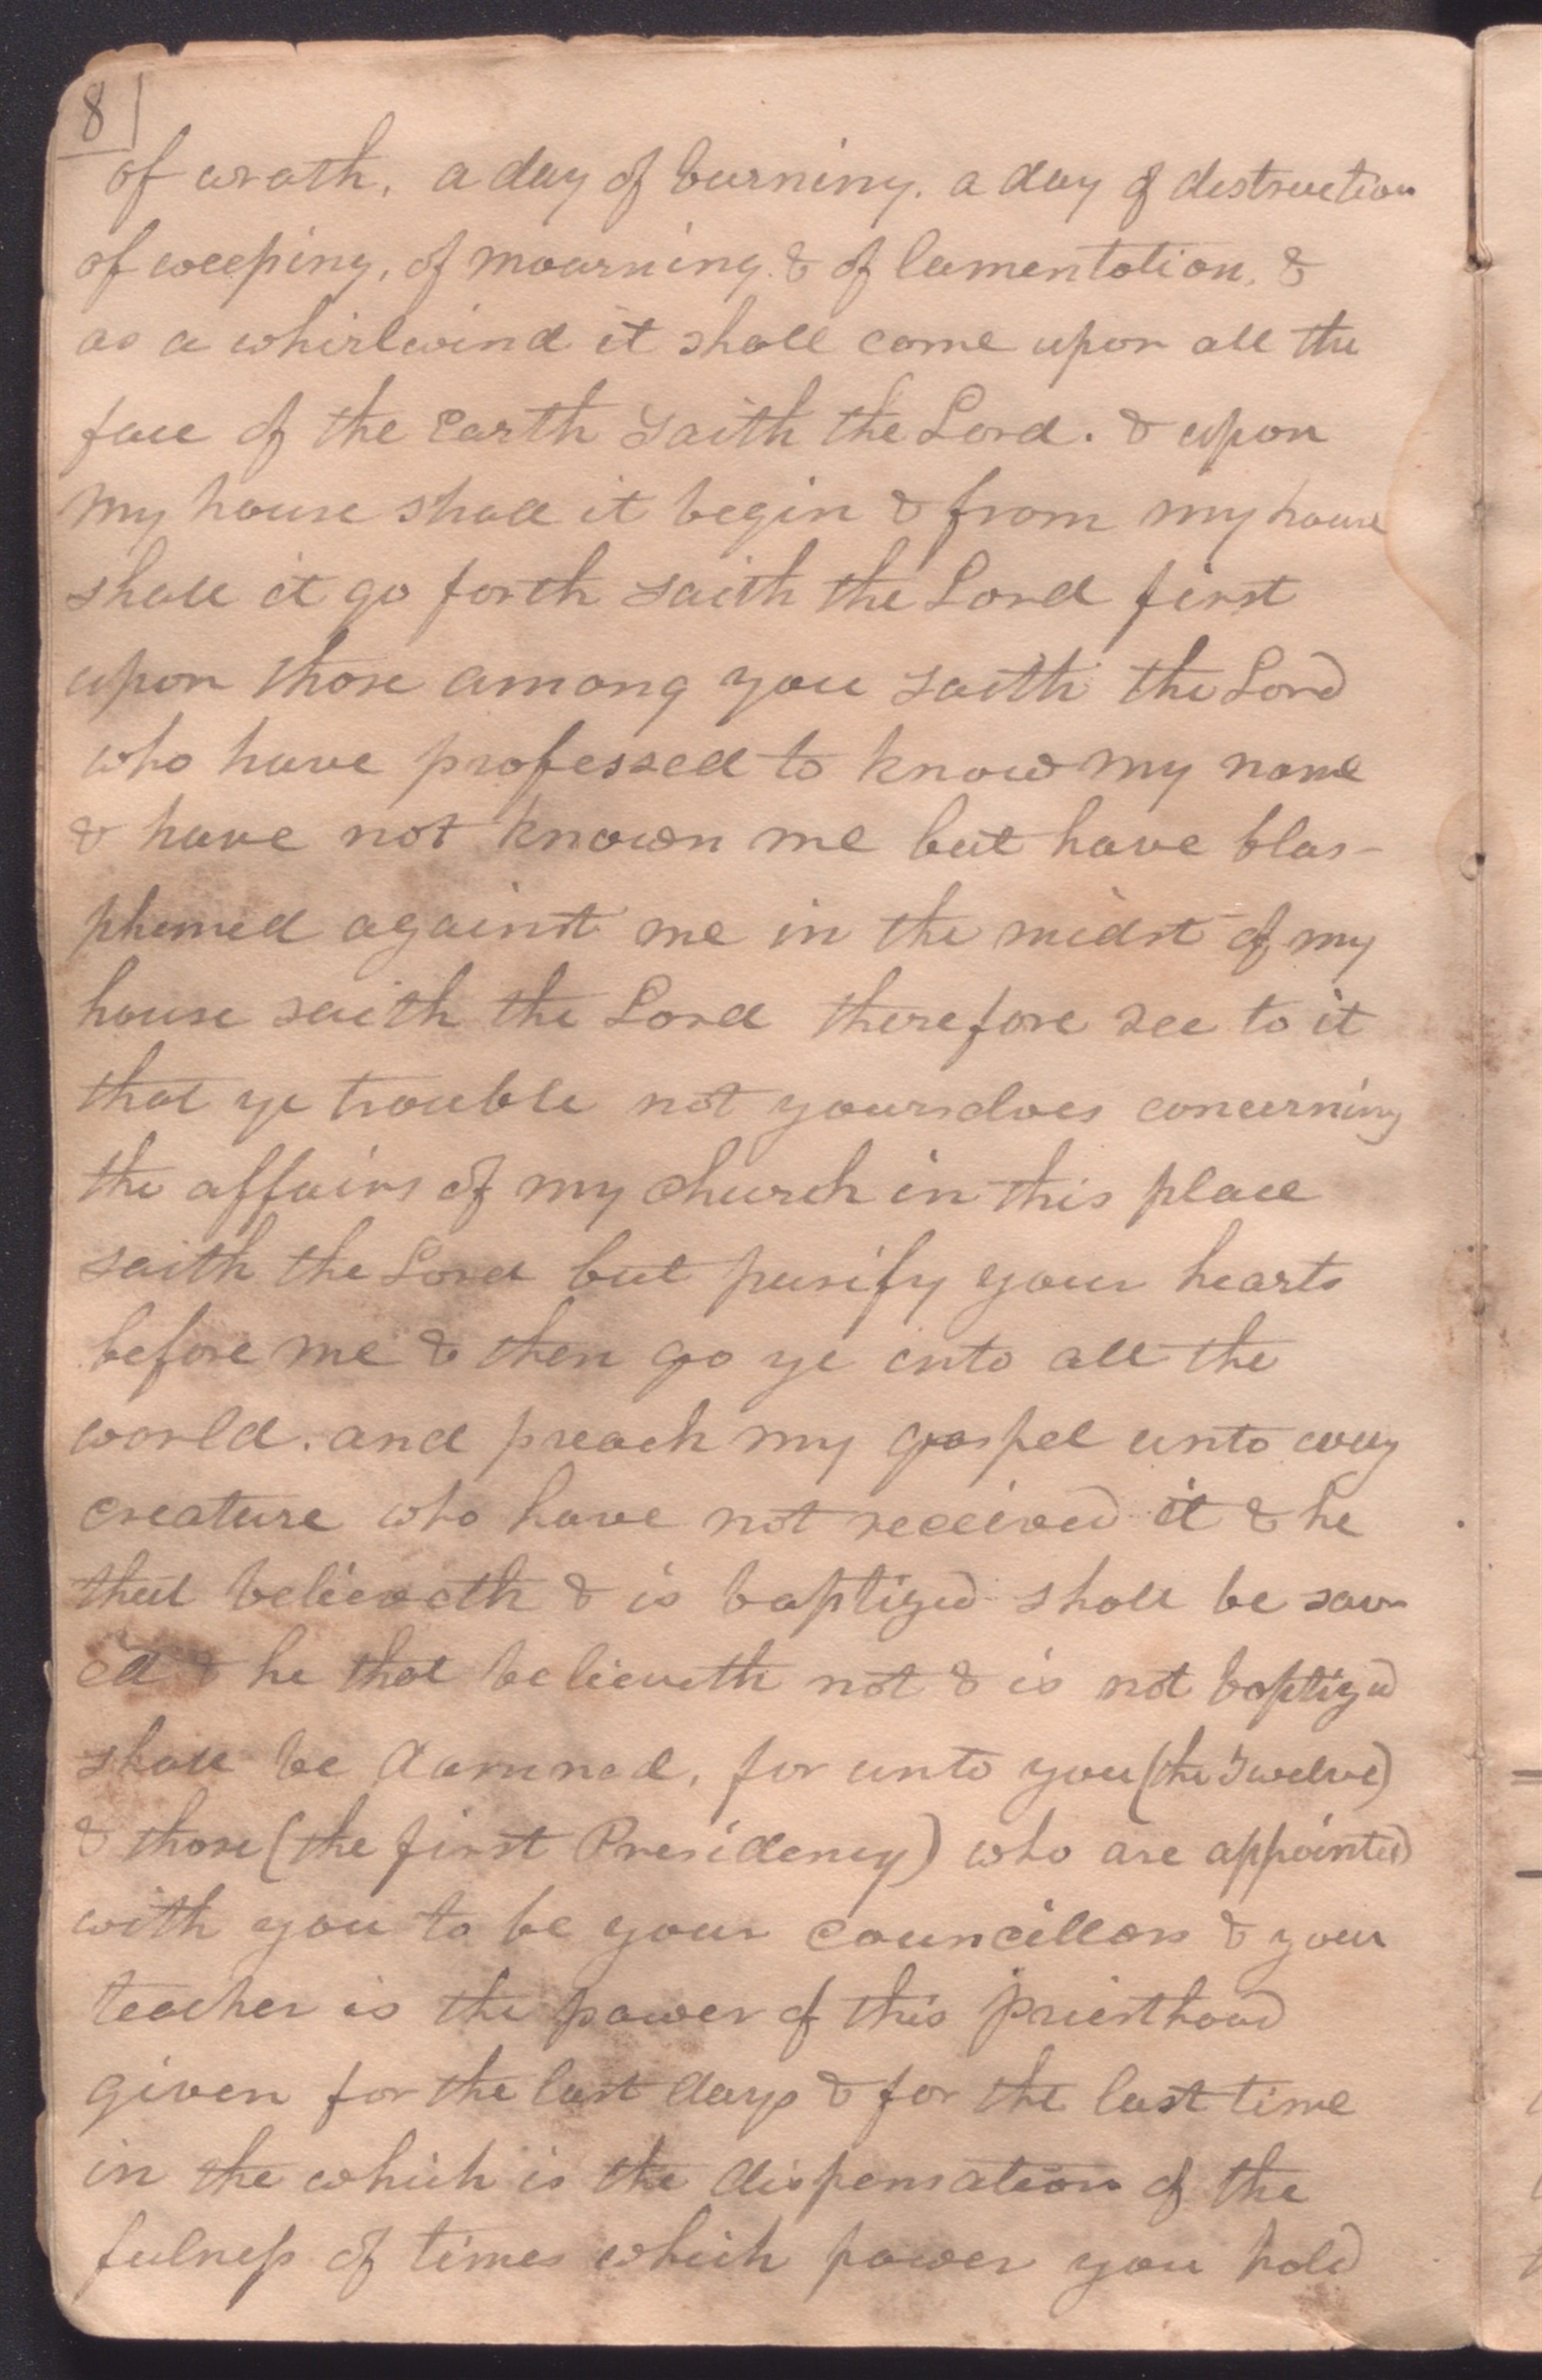 8
of wrath, a day of burning. a day of destruction
of weeping, of mourning. & of lamentation, &
as a whirlwind it shall come upon all the
face of the Earth saith the Lord. & upon
my house shall it begin & from my house
shall it go forth saith the Lord first
upon those among you saith the Lord
who have professed to know my name
& have not known me but have blas-
phemed against me in the midst of my
house saith the Lord therefore see to it
that ye trouble not yourselves concerning
the affairs of my church in this place
saith the Lord but purify your hearts
before me & then go ye into all the
world. and preach my gospel unto every
creature who have not received it & he
that believeth & is baptized shall be sav-
ed & he that believeth not & is not baptized
shall be damned, for unto you (the Twelve)
& those (the first Presidency) who are appointed
with you to be your councillors & your
teacher is the power of this priesthood
given for the last days & for the last time
in the which is the dispensation of the
fulness of times which power you hold